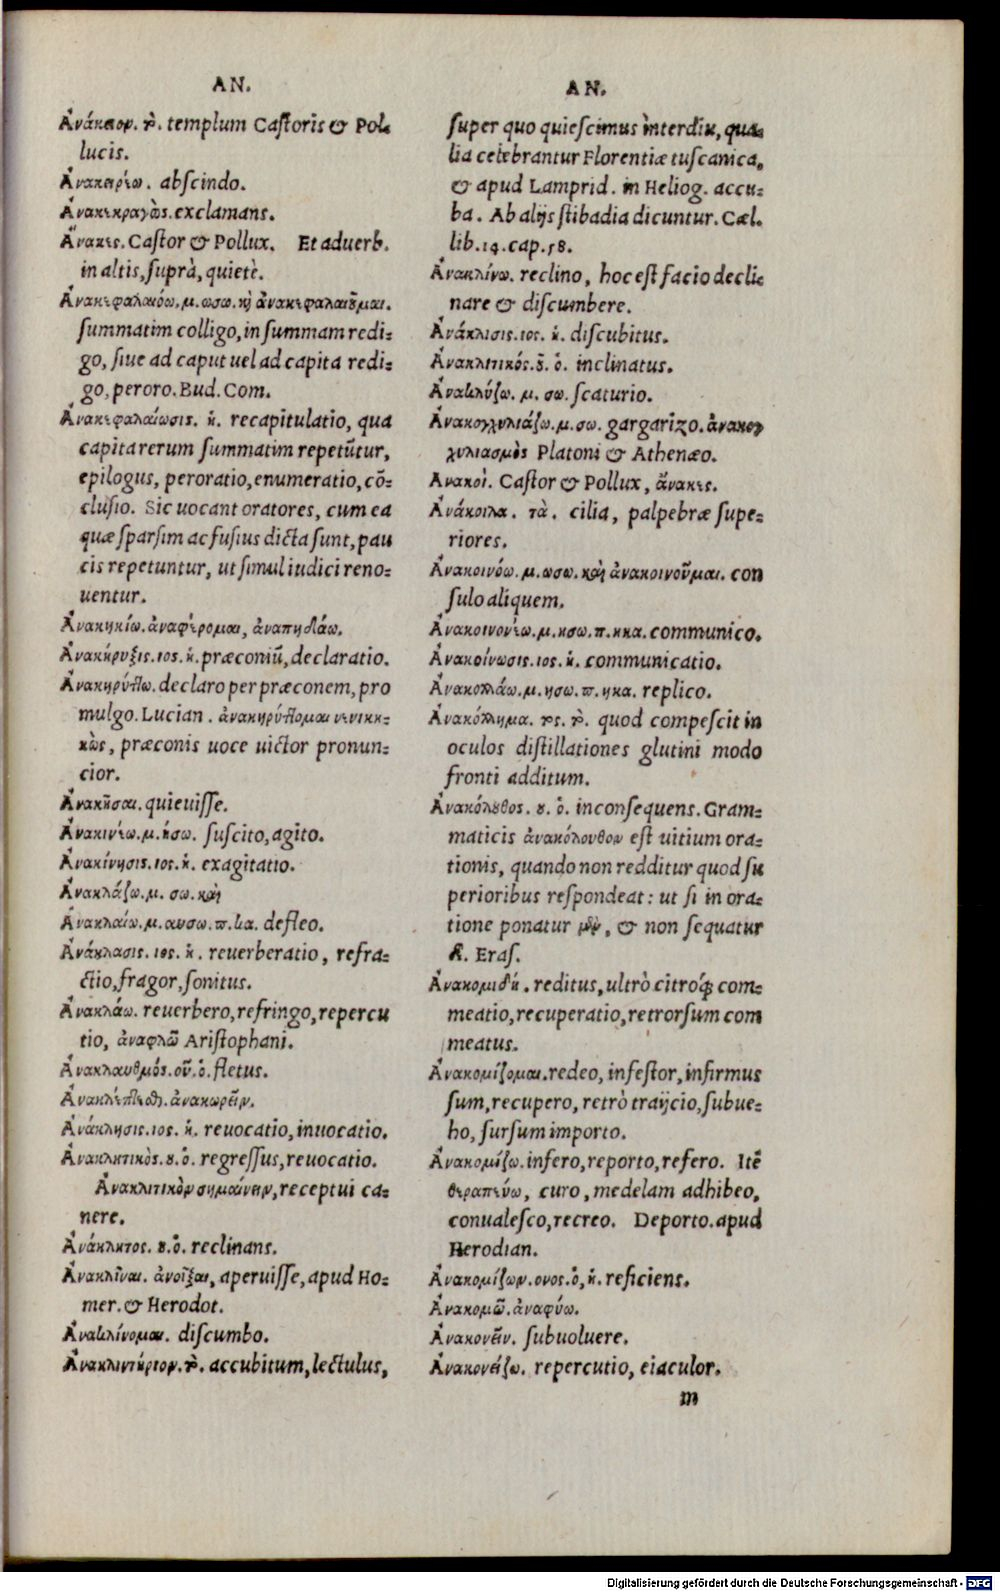 AN.
Ἀνάκειον. τὸ. templum Castoris & Pol-
lucis.
Ἀνακειρίω. abscindo.
Ἀνακεκραγὼς. exclamans.
Ἄνακες. Castor & Pollux. Et aduerb.
in altis, suprà, quietè.
Ἀνακεφαλαιόω. μ. ωσω. καὶ ἀνακεφαλαιοῦμαι.
summatim colligo, in summam redi-
go, siue ad caput uel ad capita redi-
go, peroro. Bud. Com.
Ἀνακεφαλαίωσις. ἡ. recapitulatio, qua
capita rerum summatim repetūtur,
epilogus, peroratio, enumeratio, cō-
clusio. Sic uocant oratores, cum ea
quæ sparsim ac fusius dicta sunt, pau
cis repetuntur, ut simul iudici reno-
uentur.
Ἀνακηκίω. ἀναφέρομαι, ἀναπηδάω.
Ἀνακήρυξις. ιος. ἡ. præconiū, declaratio.
Ἀνακηρύττω. declaro per præconem, pro
mulgo. Lucian. ἀνακηρύττομαι νενικη-
κὼς, præconis uoce uictor pronun-
cior.
Ἀνακῆσαι. quieuisse.
Ἀνακινέω. μ. ήσω. suscito, agito.
Ἀνακίνησις. ιος. ἡ. exagitatio.
Ἀνακλάζω. μ. σω. καὶ
Ἀνακλαίω. μ. αυσω. π. κα. defleo.
Ἀνάκλασις. ιος. ἡ. reuerberatio, refra-
ctio, fragor, sonitus.
Ἀνακλάω. reuerbero, refringo, repercu
tio, ἀναφλῶ Aristophani.
Ἀνακλαυθμός. οῦ. ὁ. fletus.
Ἀνακλέπτεσθ. ἀνακωρεῖν.
Ἀνάκλησις. ιος. ἡ. reuocatio, inuocatio.
Ἀνακλητικὸς. ου. ὁ. regressus, reuocatio.
Ἀνακλιτικὸν σημαίνειν, receptui ca-
nere.
Ἀνάκλητος. ου. ὁ. reclinans.
Ἀνακλῖναι. ἀνοῖξαι, aperuisse, apud Ho-
mer. & Herodot.
Ἀνακλίνομαι. discumbo.
Ἀνακλιντήριον. τὸ. accubitum, lectulus,
AN.
super quo quiescimus interdiu, qua-
lia celebrantur Florentiæ tuscanica,
& apud Lamprid. in Heliog. accu-
ba. Ab alijs stibadia dicuntur. Cæl.
lib. 14. cap. 58.
Ἀνακλίνω. reclino, hoc est facio decli-
nare & discumbere.
Ἀνάκλισις. ιος. ἡ. discubitus.
Ἀνακλιτικός. οῦ. ὁ. inclinatus.
Ἀνακλύζω. μ. σω. scaturio.
Ἀνακογχυλιάζω. μ. σω. gargarizo. ἀνακογ
χυλιασμὸς Platoni & Athenæo.
Ἀνακοὶ. Castor & Pollux, ἄνακες.
Ἀνάκοιλα. τὰ. cilia, palpebræ supe-
riores.
Ἀνακοινόω. μ. ωσω. καὶ ἀνακοινοῦμαι. con
sulo aliquem.
Ἀνακοινονέω. μ. ησω. π. ηκα. communico.
Ἀνακοίνωσις. ιος. ἡ. communicatio.
Ἀνακολλάω. μ. ησω. π. ηκα. replico.
Ἀνακόλλημα. τος. τὸ. quod compescit in
oculos distillationes glutini modo
fronti additum.
Ἀνακόλουθος. ου. ὁ. inconsequens. Gram-
maticis ἀνακόλουθον est uitium ora-
tionis, quando non redditur quod su
perioribus respondeat: ut si in ora-
tione ponatur μὲν, & non sequatur
δὲ. Eras.
Ἀνακομιδή. reditus, ultrò citróq; com-
meatio, recuperatio, retrorsum com
meatus.
Ἀνακομίζομαι. redeo, infestor, infirmus
sum, recupero, retrò traijcio, subue-
ho, sursum importo.
Ἀνακομίζω. infero, reporto, refero. Itē
θεραπεύω, curo, medelam adhibeo,
conualesco, recreo. Deporto. apud
Herodian.
Ἀνακομίζων. ονος. ὁ, ἡ. reficiens.
Ἀνακομῶ. ἀναφύω.
Ἀνακονεῖν. subuoluere.
Ἀνακονείζω. repercutio, eiaculor.
m
Digitalisierung gefördert durch die Deutsche Forschungsgemeinschaft - DFG